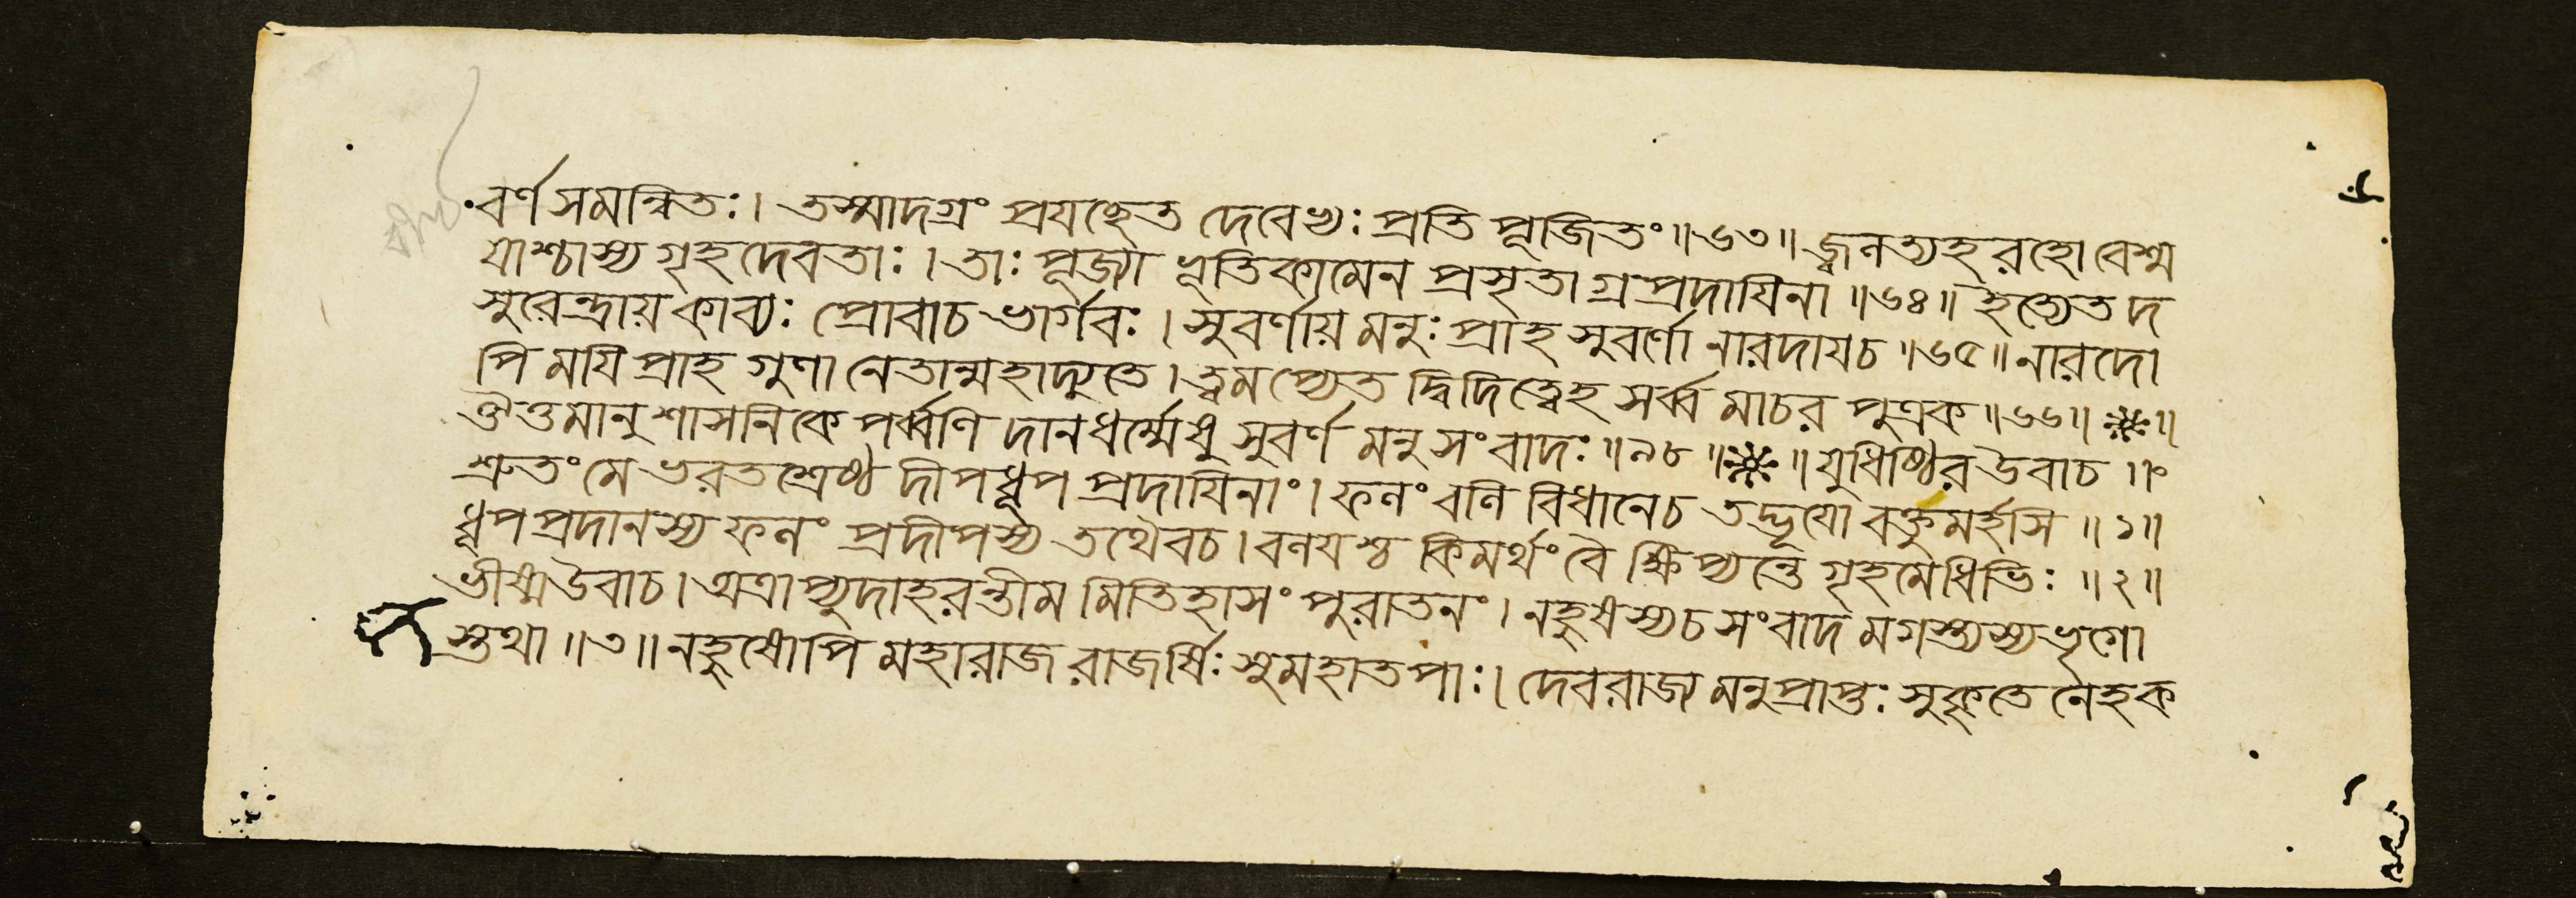 বর্ণসমন্বিতঃ। তস্মাদগ্রং প্রযচ্ছেত দেবেভ্যঃ প্রতিপূজিতং॥৬৩॥ জ্বলত্যহরহো বেশ্ম
যাশ্চাস্য গৃহদেবতাঃ। তাঃ পূজ্যা ভূতিকামেন প্রসৃতাগ্রপ্রদায়িনা॥৬৪॥ ইত্যেতদ
সুরেন্দ্রায় কাব্যঃ প্রোবাচ ভার্গবঃ। সুবর্ণায় মনুঃ প্রাহ সুবর্ণো নারদায়চ॥৬৫॥ নারদো
পি ময়ি প্রাহ গুণানেতান্মহাদ্যুতে। ত্বমপ্যেতদ্বিদিত্বেহ সর্ব্বমাচর পুত্রক॥৬৬॥ ※॥
ঔত্তমানুশাসনিকে পর্ব্বণি দানধর্ম্মেষু সুবর্ণমনুসংবাদঃ॥৯৮॥※॥ যুধিষ্ঠির উবাচ॥
শ্রুতং মে ভরতশ্রেষ্ঠ দীপধূপপ্রদায়িনাং। ফলং বলিবিধানেচ তদ্ভূয়ো বক্তুমর্হসি॥১॥
ধূপপ্রদানস্য ফলং প্রদীপস্য তথৈবচ। বলয়শ্চ কিমর্থং বৈ ক্ষিপ্যন্তে গৃহমেধিভিঃ॥২॥
ভীষ্মউবাচ। অত্রাপ্যুদাহরন্তীমমিতিহাসং পুরাতনং। নহুষস্যচ সংবাদমগস্ত্যস্য ভৃগো
স্তথা॥৩॥ নহুষোপি মহারাজ রাজর্ষিঃ সুমহাতপাঃ। দেবরাজ্যমনুপ্রাপ্তঃ সুকৃতেনেহ ক